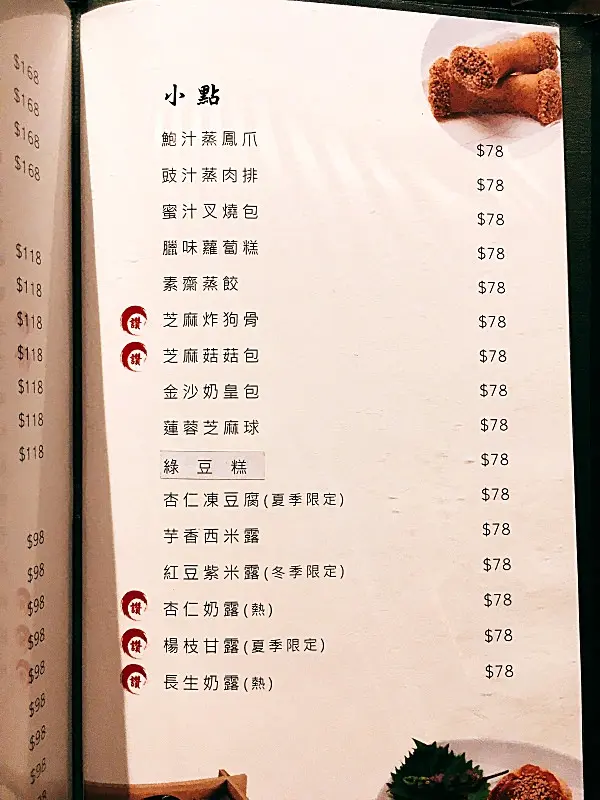 $168
$168
$168
$168
$118
$118
$118
$118
$118
$118
$118
$98
$98
$98
$98
$98
$98
$98
$98
小點
鮑汁蒸鳳爪 $78
豉汁蒸肉排 $78
蜜汁叉燒包 $78
臘味蘿蔔糕 $78
素齋蒸餃 $78
讚 芝麻炸狗骨 $78
讚 芝麻菇菇包 $78
金沙奶皇包 $78
蓮蓉芝麻球 $78
綠豆糕 $78
杏仁凍豆腐(夏季限定) $78
芋香西米露 $78
紅豆紫米露(冬季限定) $78
讚 杏仁奶露(熱) $78
讚 楊枝甘露(夏季限定) $78
讚 長生奶露(熱) $78